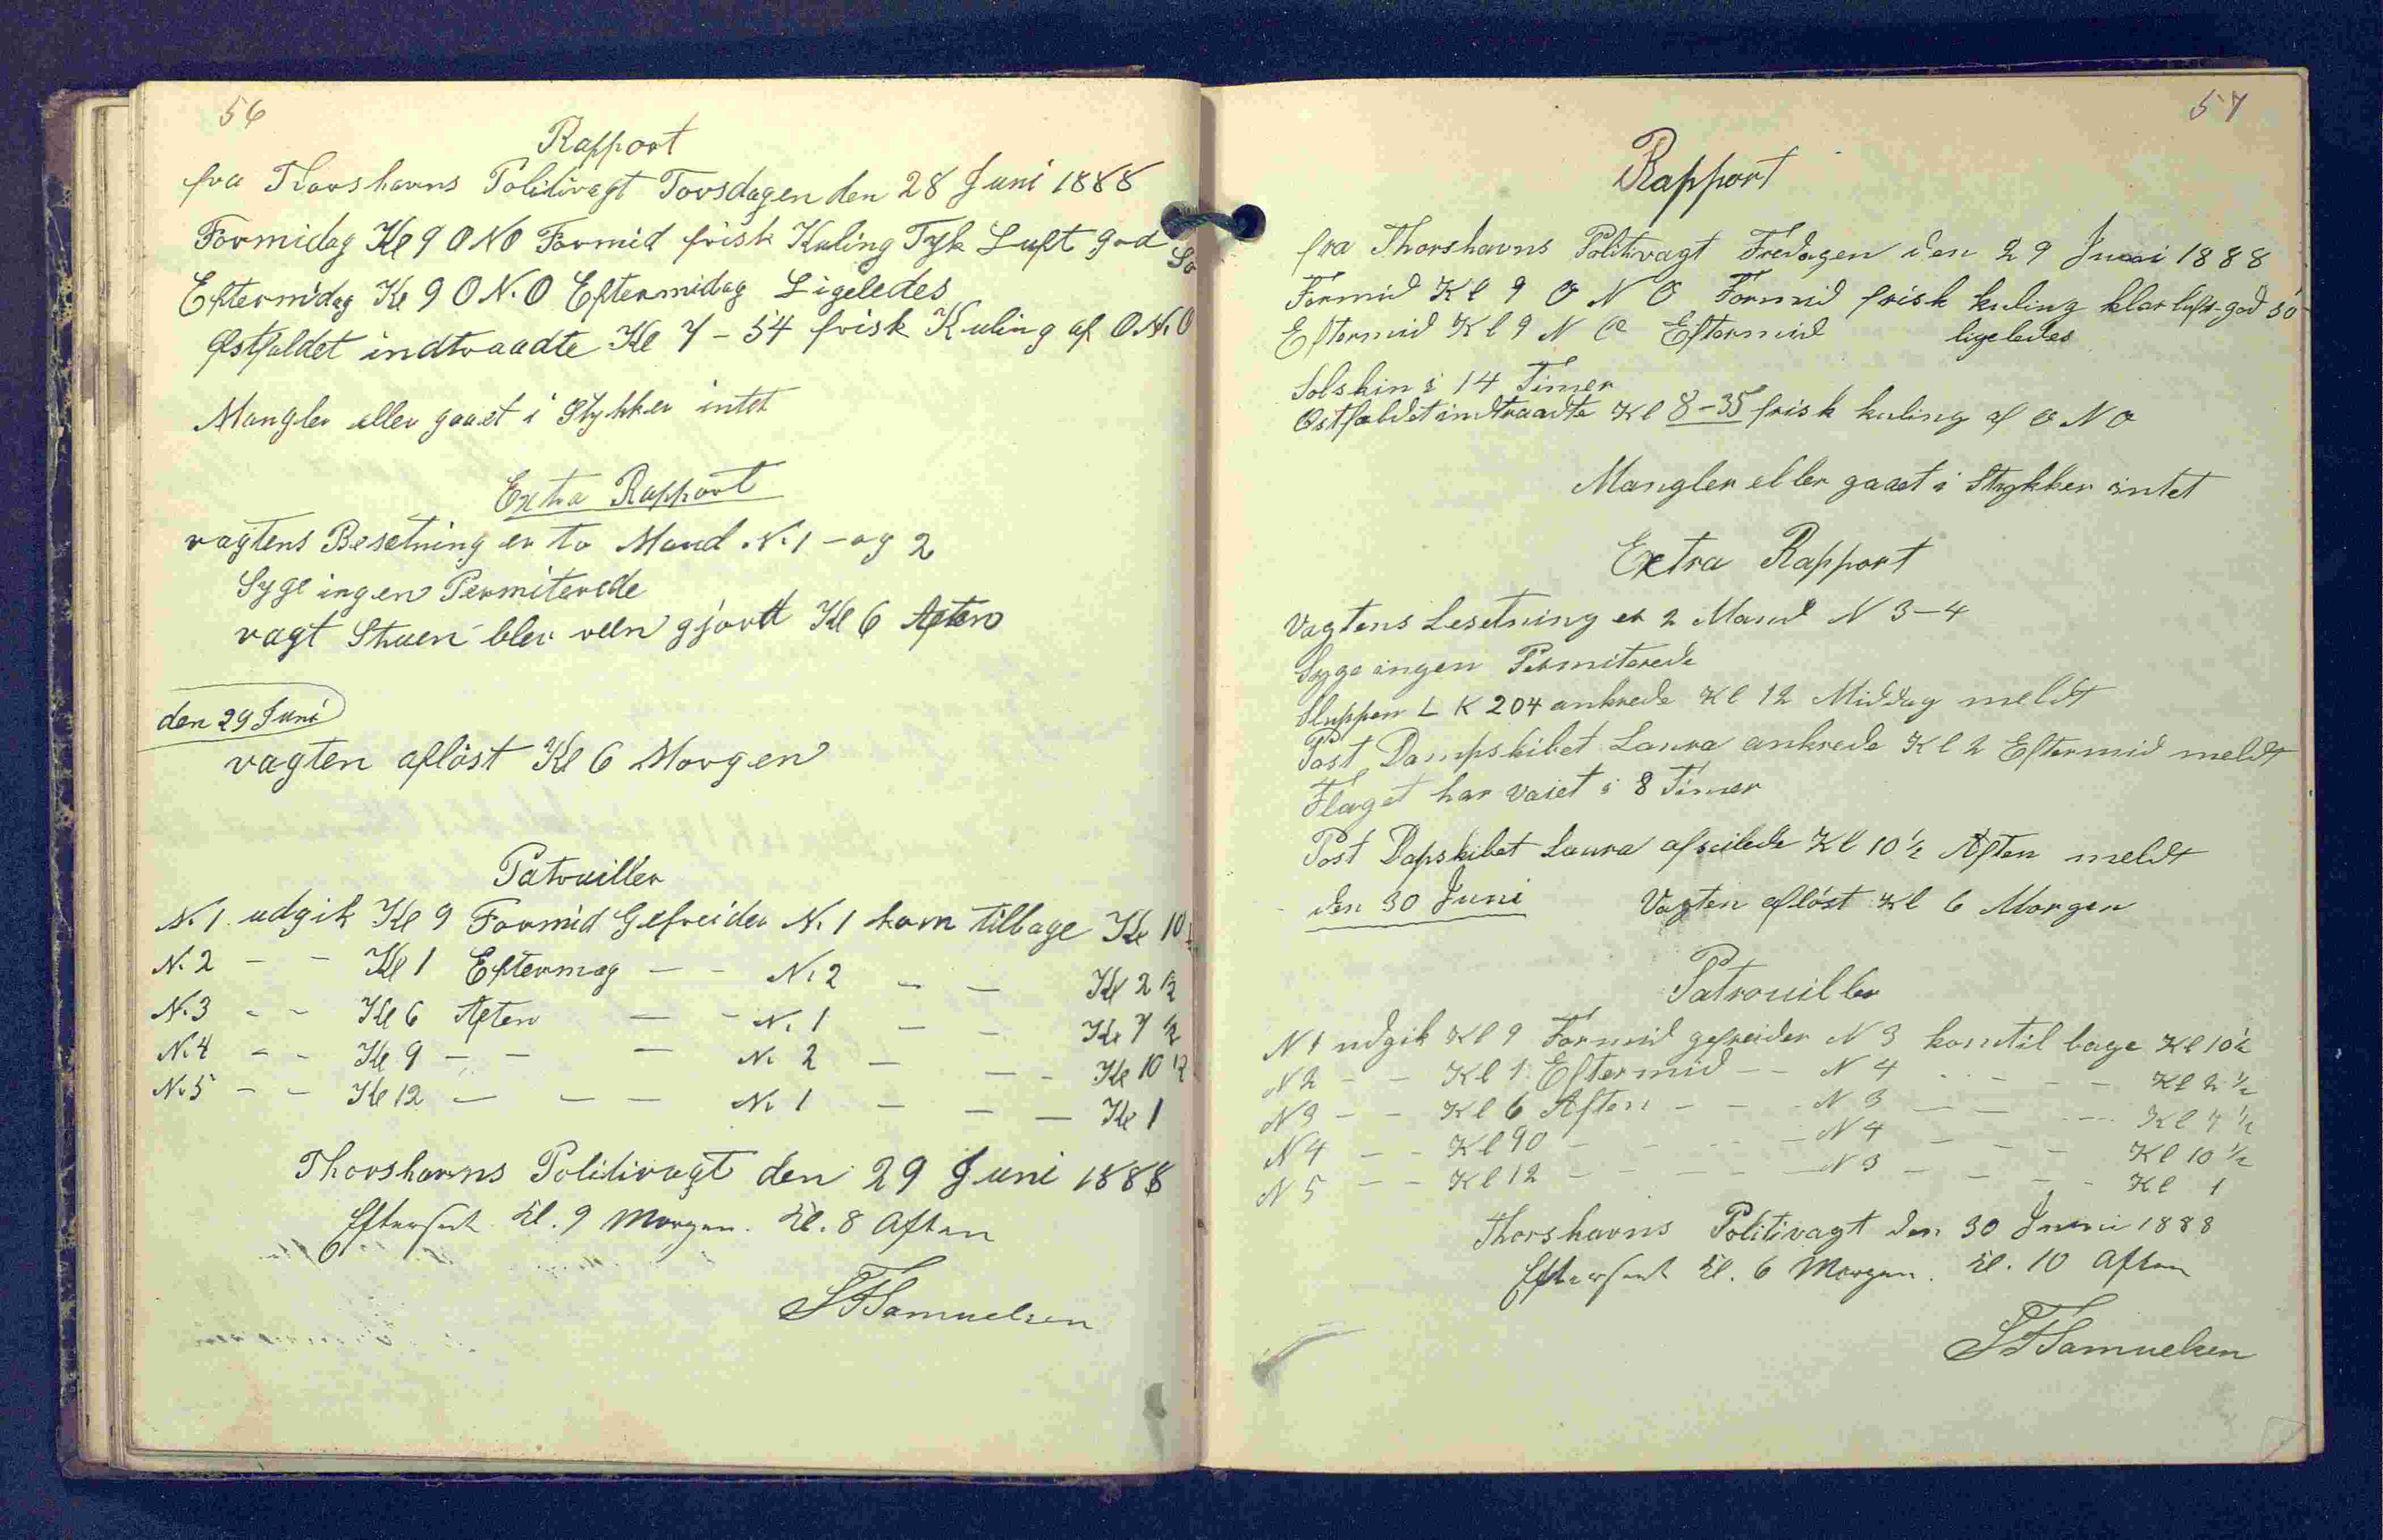 56
Rapport
fra Thorshavns Politivagt Torsdagen den 28 Juni 1888
Formidag Kl 9 O N O Formid frisk Kuling Tyk Luft god Sö
Eftermidag Kl 9 O N. O Eftermidag Ligeledes
Østfaldet indtraadte Kl 7 - 54 frisk Kuling af O N. O
Mangler eller gaaet i Stykker intet
Extra Rapport
vagtens Besetning er to Mand N. 1 - og 2
Syge ingen Permiterede
vagt Stuen blev reen gjort Kl 6 Aften
den 29 Juni
vagten aflöst Kl 6 Morgen
Patrouiller
N. 1 udgik Kl 9 Formid Gefreider N. 1 kom tilbage Kl 10 ½
N. 2 - - Kl 1 Eftermag - - N. 2 - - Kl 2 ½
N. 3 - - Kl 6 Aften - - N. 1 - - Kl 7 ½
N. 4 - - Kl 9 - - - N. 2 - - - Kl 10 ½
N. 5 - - Kl 12 - - - N. 1 - - - Kl 1
Thorshavns Politivagt den 29 Juni 1888
Efterseet Kl. 9 Morgen. Kl. 8 Aften
SFSamuelsen
57
Rapport
fra Thorshavns Politivagt Fredagen den 29 Juni 1888
Formid Kl 9 O N O Formid frisk kuling klar luft god sö
Eftermid Kl 9 N O Eftermid ligeledes
Solskin i 14 Timer
Østfaldet indtraadte Kl 8-35 frisk kuling af O N O
Mangler eller gaaet i Stykker intet
Extra Rapport
Vagtens Besetning er 2 Mand N 3-4
Syge ingen Permiterede
Sluppen L K 204 ankrede Kl 12 Middag meldt
Post Dampskibet Laura ankrede Kl 2 Eftermid meldt
Flaget har vaiet i 8 Timer
Post Dapskibet Laura afseilede Kl 10 ½ Aften meldt
den 30 Juni Vagten aflöst Kl 6 Morgen
Patrouiller
N 1 udgik Kl 9 Formid gefreider N 3 kom til bage Kl 10 ½
N 2 - - Kl 1 Eftermid - - N 4 - - - - Kl 2 ½
N 3 - - Kl 6 Aften - - - N 3 - - - Kl 7 ½
N 4 - - Kl 90 - - - - N 4 - - - Kl 10 ½
N 5 - - Kl 12 - - - - N 3 - - - - Kl 1
Thorshavns Politivagt den 30 Juni 1888
Efterseet Kl. 6 Morgen. Kl. 10 Aften
SFSamuelsen